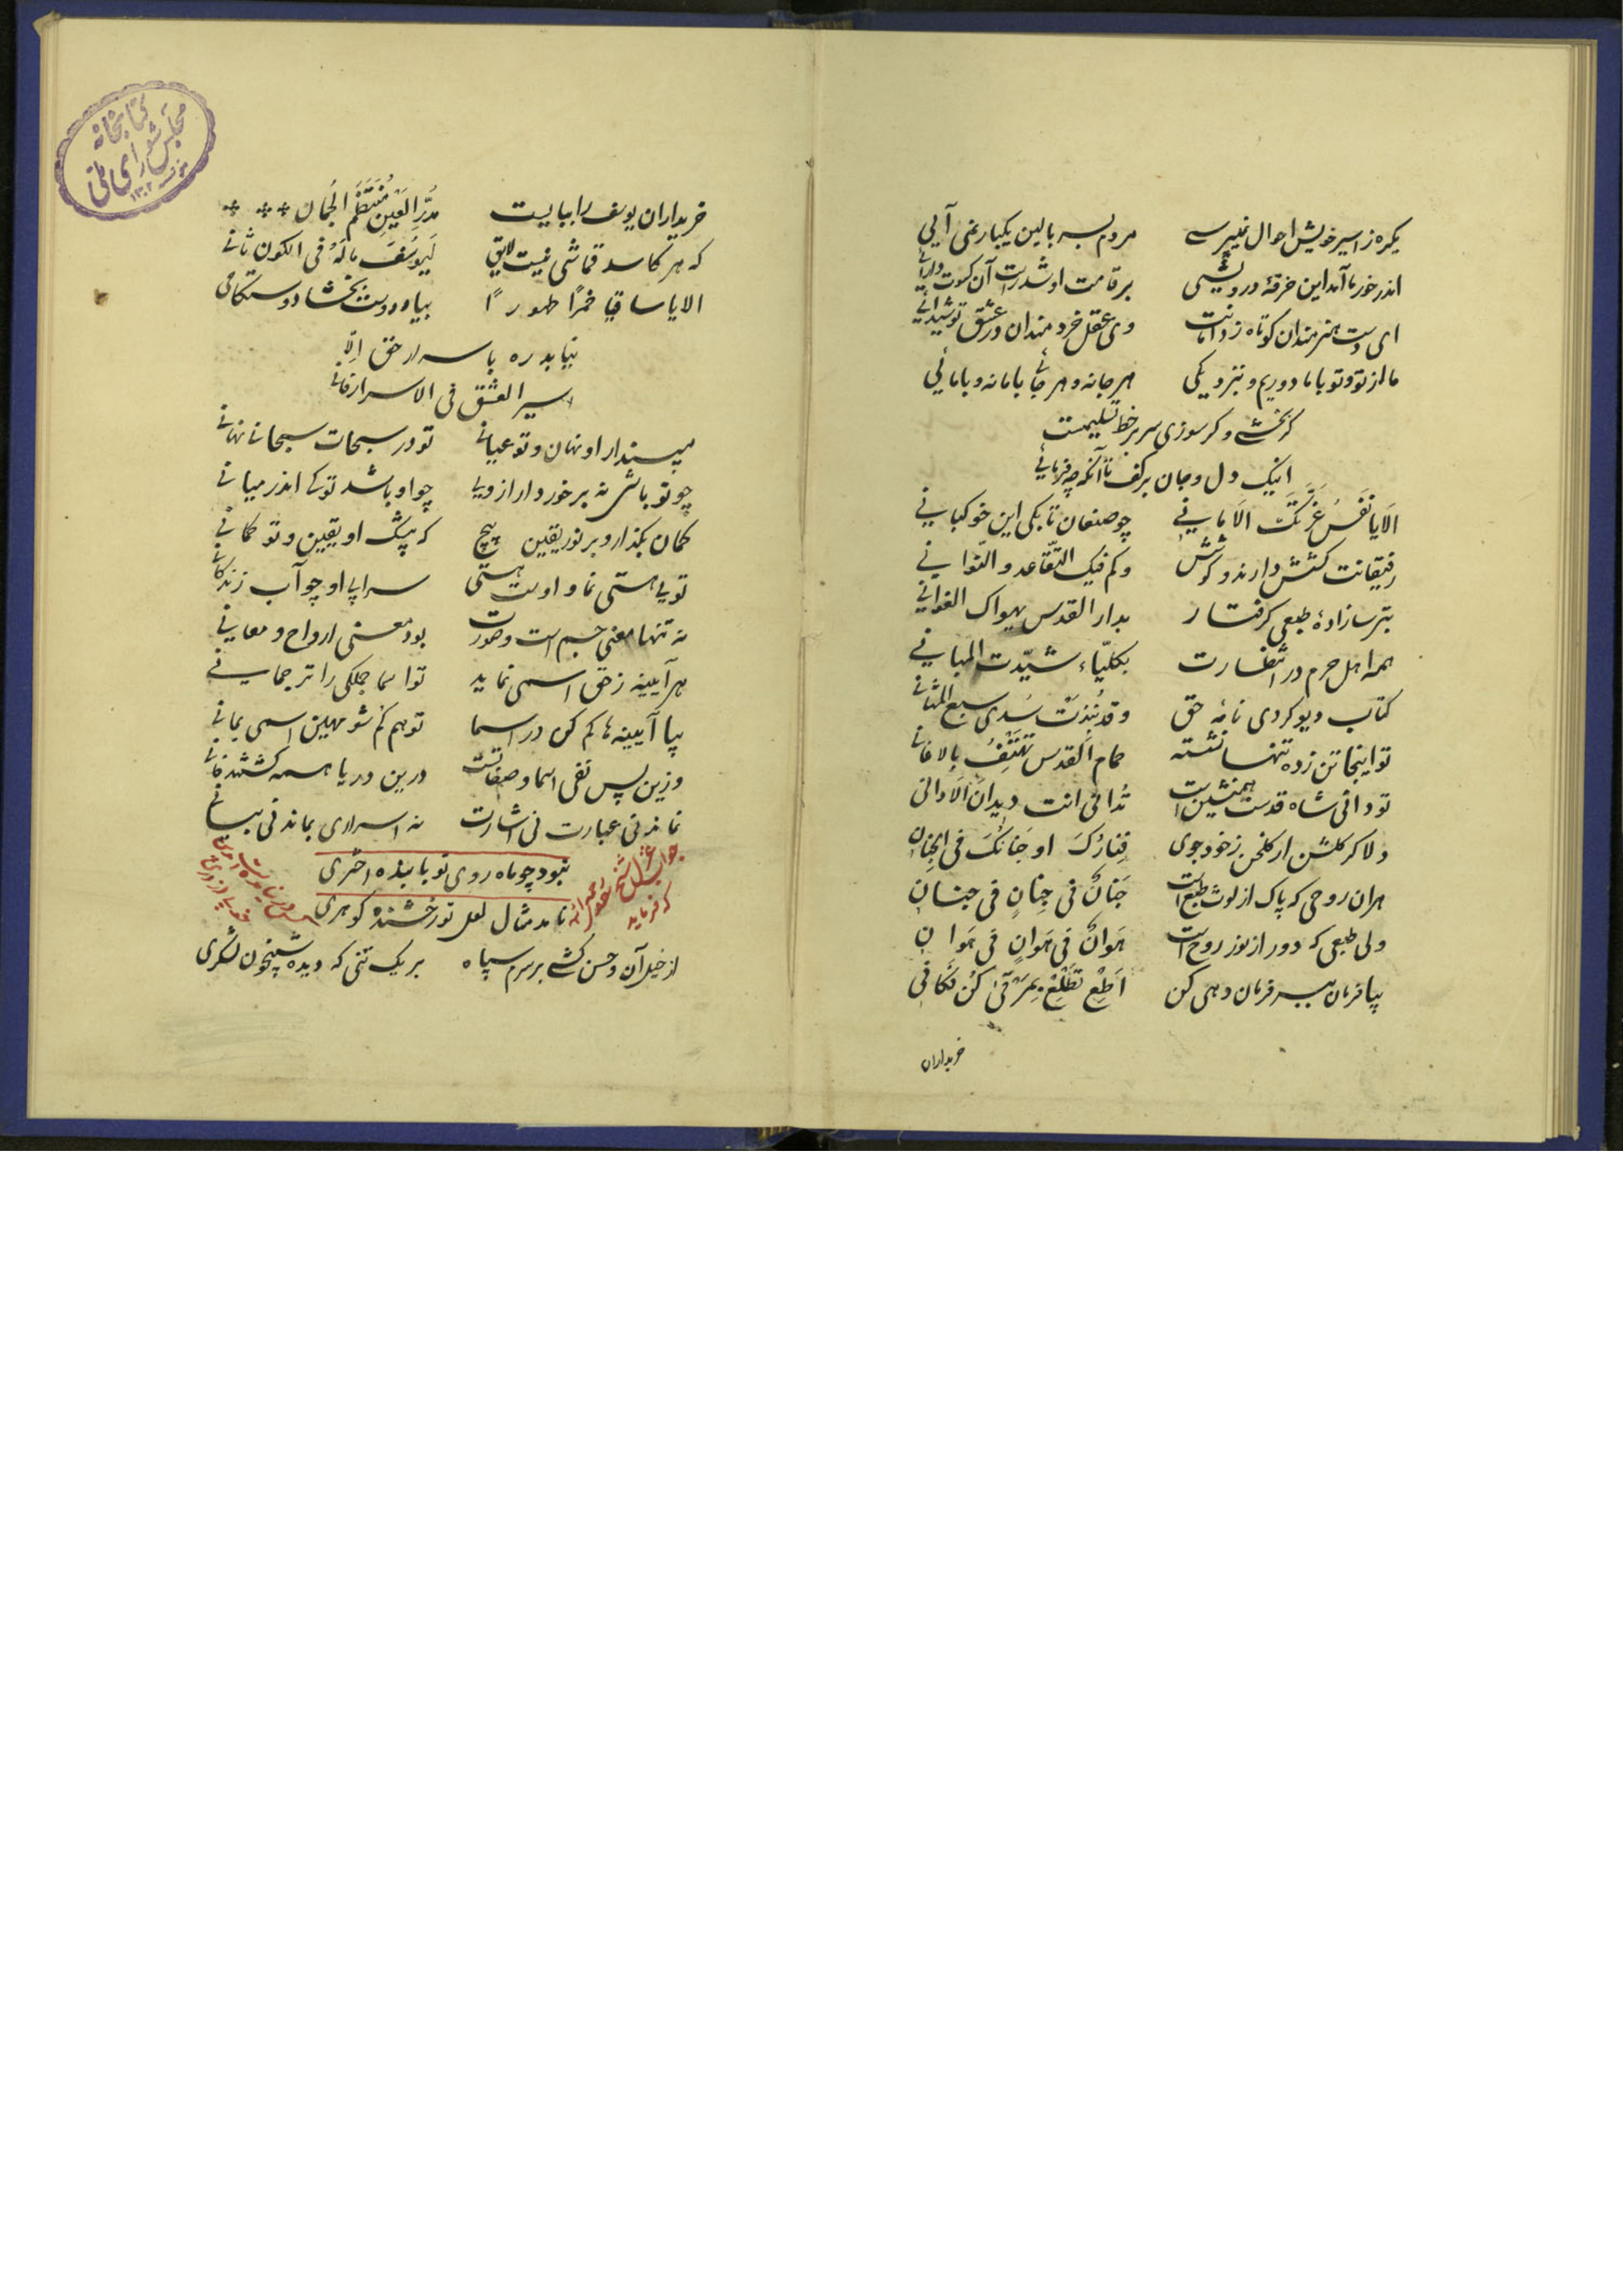 یکره ز اسیر خویش احوال نمیپرسے مردم بسر بالین یکبار نمی آیی
اندر خور ما آمد این خرقهٔ درویشی بر قامت او شد راست آن کسوت دارائی
ای دست هنرمندان کوتاه ز دامانت وی عقل خردمندان در عشق تو شیدائی
ما از تو و تو با ما دوریم و بنزدیکی هر جا نه و هر جائی با ما نه و با مائی
گر بخشے و گر سوزی سر بر خط تسلیمست
اینک دل و جان بر کف تا آنکه چه فرمائی
الا یا نفس غرتک الامانی چو صنعان تا بکی این خوکبانی
رفیقانت کشش دارند و کوشش وکم فیک التقاعد و التوانی
بتر سازادهٔ طبعی گرفتار بدار القدس یهواک الغوانی
همه اهل حرم در انتظارت بکلیّاء شیّدت المبانی
کتاب دیو کردی نامهٔ حق وقد نُبِذت سُدی سبع المثانی
تو اینجا تن زده تنها نشسته حمام القدس تهتف بالاغانی
تو دانی شاه قدست همنشین است تُدانی انت دیدان الادانی
دلا گر گلشن ار گلخن ز خود جوی فنارک او جَنانک فی الجنان
هر ان روحی که پاک از لوث طبع است جَنانٌ فی جِنانٍ فی جنان
ولی طبعی که دور از نور روح است هَوانٌ فی هَوانٍ فی هَوان
بیا فرمان ببر فرمان دهی کن اَطِعْ تُطَلِعْ بمرقی کن فکانی
خریداران
کتابخانه مجلس شورای ملی
۱۳۰۲
خریداران یوسف را ببایست مدرّ العین منتظم الجمان
که هر کاسد قماشی نیست لایق لیوسف ماله فی الکون ثانی
الا یا ساقیا خمرًا طهورًا بیا ه دوست بخشا دوستکانی
نیابد ره باسرار حق الّا
اسیر العشق فی الاسرار فانی
مپندار او نهان و تو عیانی تو در سبحات سبحانی نهانی
چو تو باشی نه برخوردار از ویے چو او باشد تو کے اندر میانی
گمان بگذار و بر نور یقین پیچ که پیشک او یقین و تو گمانی
تویے هستی نما و اوست هستی سرابی او چو آب زندگانی
نه تنها معنی جسم است و صورت بود معنی ارواح و معانی
هر آیینه ز حق اسمی نماید تو اسما جملگی را ترجمانی
بیا آیینه ها گم کن در اسما تو هم گم شو مهین اسمی بمانی
وزین پس نفی اسما و صفاتست درین دریا همه گشتند فانی
نماند نی عبارت نی اشارت نه اسراری بماند نی بیانی
جواب غزل شیخ
که فرماید
نبود چو ماه روی تو تابنده اختری
نامد مثال لعل تو رخشنده گوهری
از خیل آن و حسن کشے بر سرم سپاه بر یک تنی که دیده شبیخون لشکری